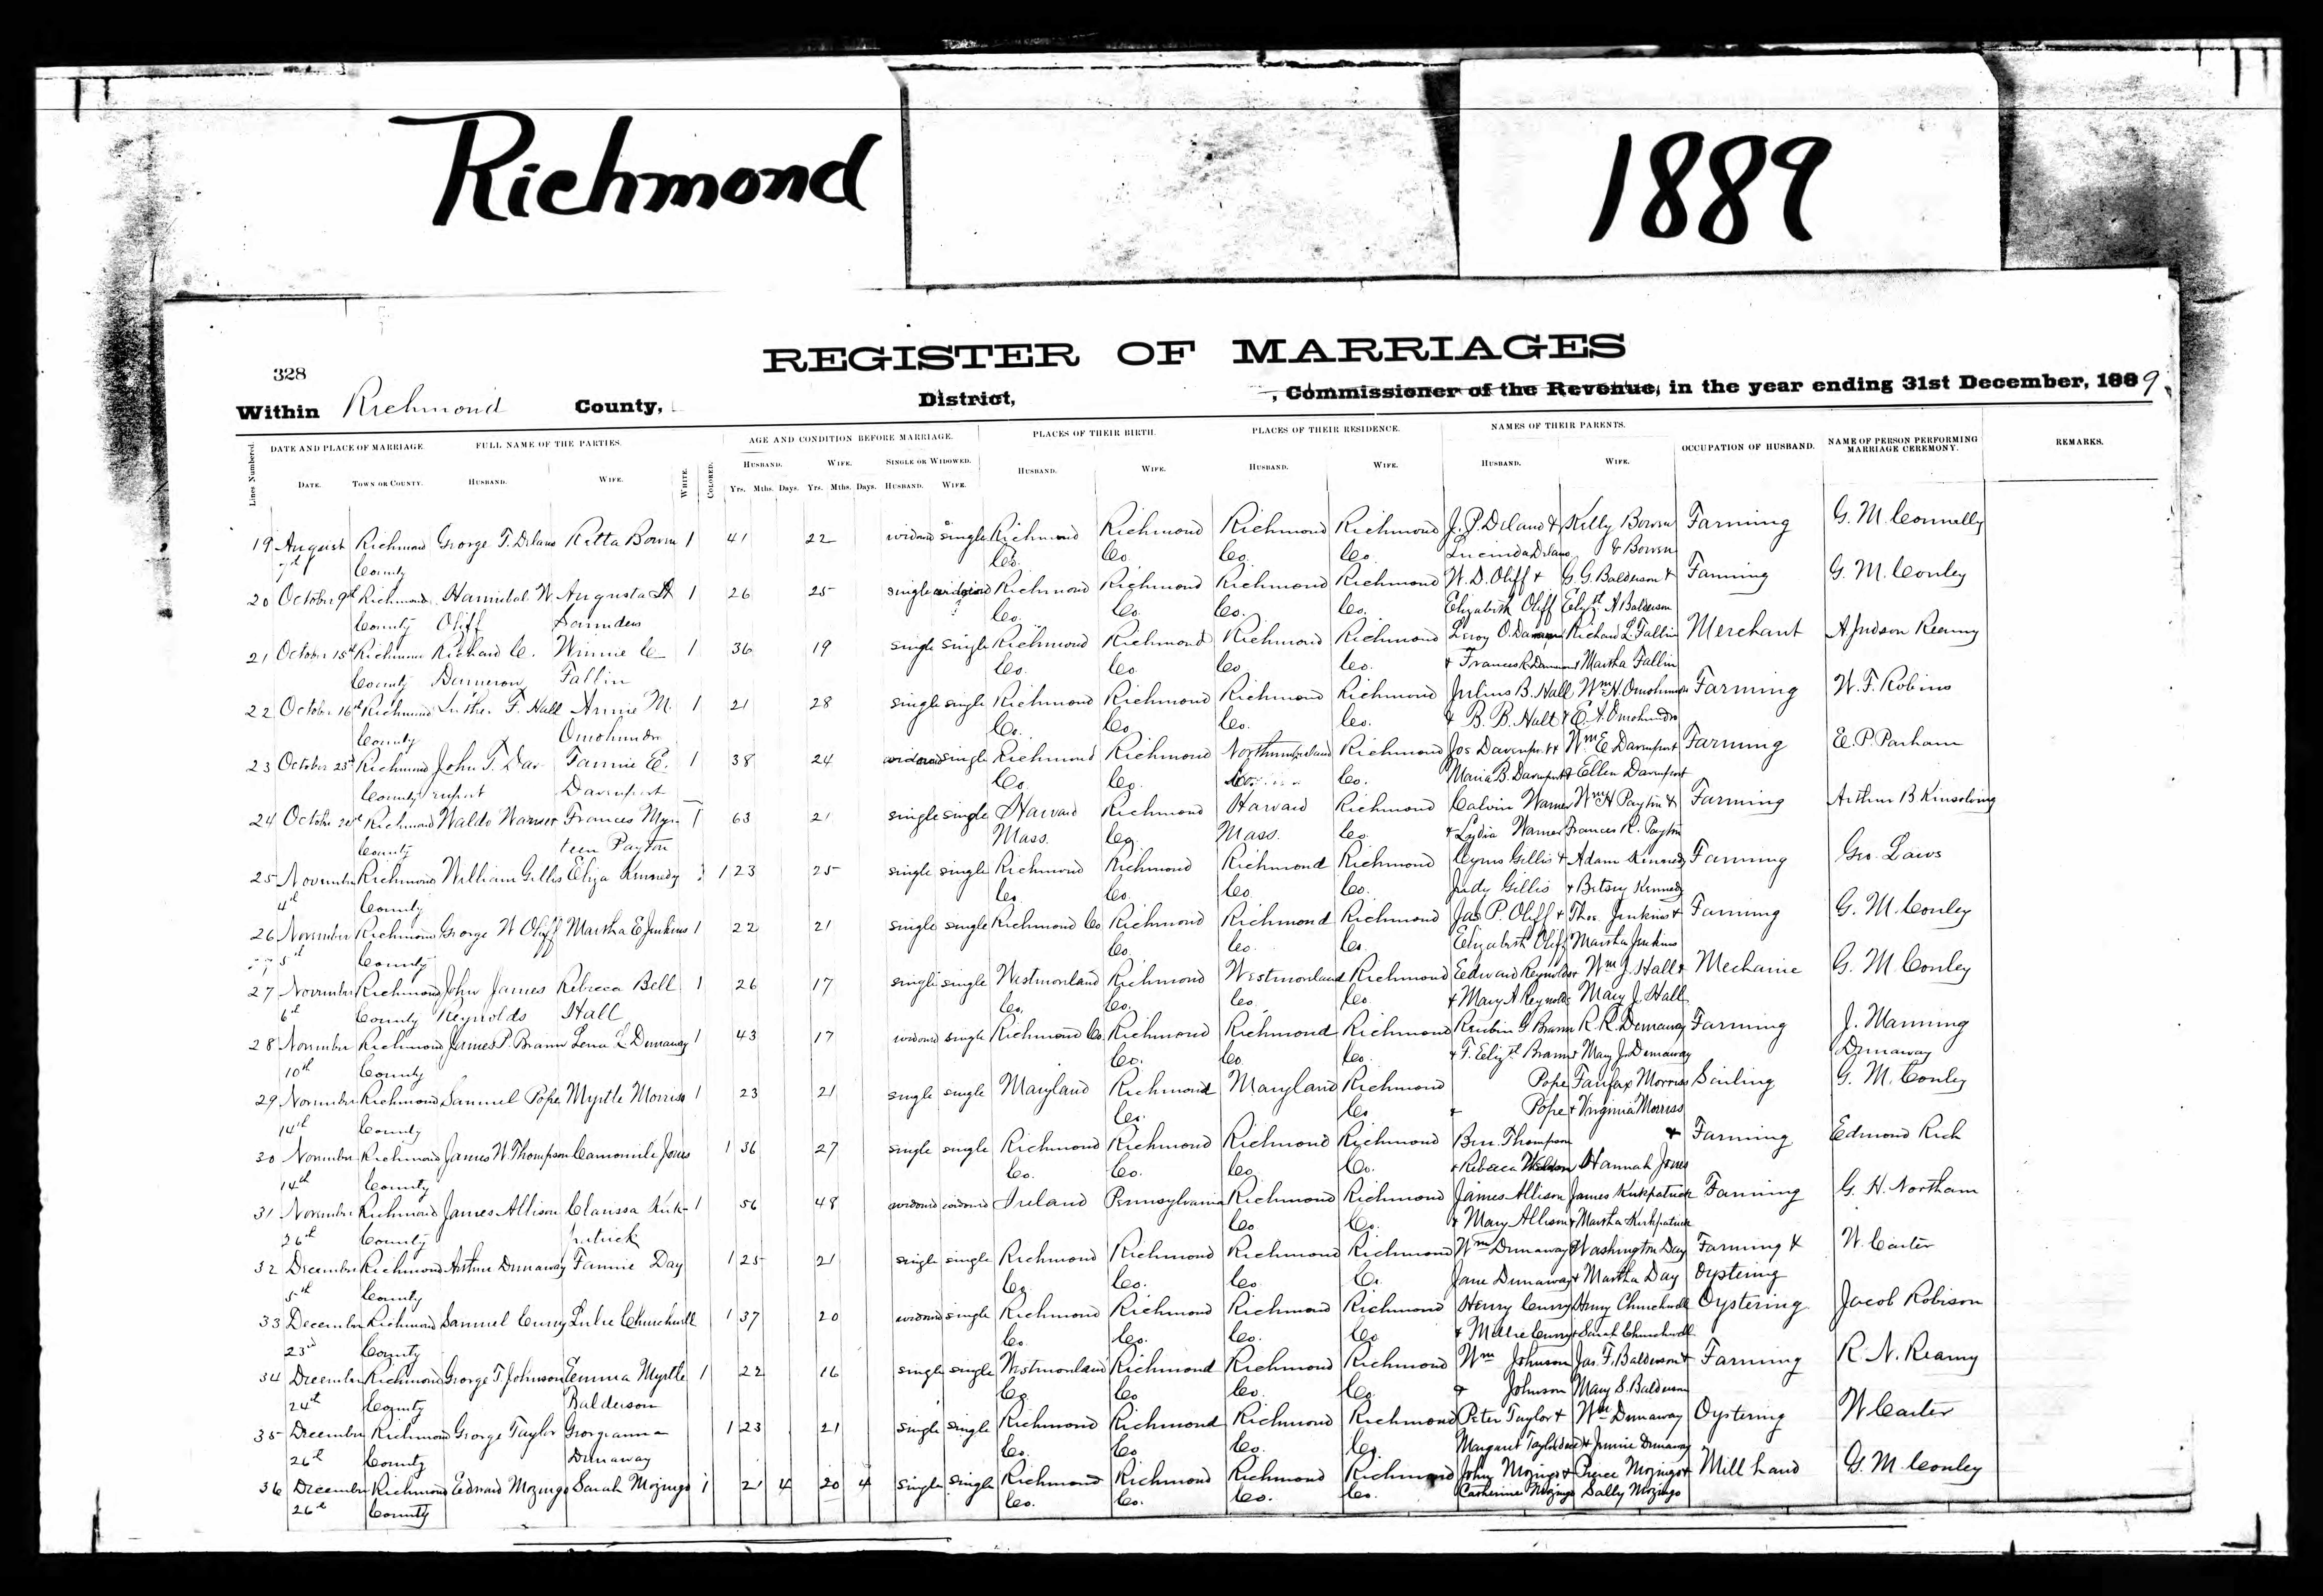 Richmond
1889
REGISTER OF MARRIAGES
328
Within Richmond County, District, , Commissioner of the Revenue, in the year ending 31st December, 1889.
Lines Numbered. DATE AND PLACE OF MARRIAGE. FULL NAME OF THE PARTIES. WHITE. COLORED. AGE AND CONDITION BEFORE MARRIAGE. PLACES OF THEIR BIRTH. PLACES OF THEIR RESIDENCE. NAMES OF THEIR PARENTS. OCCUPATION OF HUSBAND. NAME OF PERSON PERFORMING MARRIAGE CEREMONY. REMARKS.
DATE. TOWN OR COUNTY. HUSBAND. WIFE. HUSBAND. WIFE. SINGLE OR WIDOWED. HUSBAND. WIFE. HUSBAND. WIFE. HUSBAND. WIFE.
Yrs. Mths. Days. Yrs. Mths. Days. HUSBAND. WIFE.
19 August Richmond George T. Delano Retta Bowen 1 41 22 widowed single Richmond Richmond Richmond Richmond J. P. Delano & Kelly Bowen Farming G. M. Connelly
7th County Co. Co. Co. Co. Lucinda Delano & Bowen
20 October 9th Richmond Hannibal W. Augusta A 1 26 25 single widowed Richmond Richmond Richmond Richmond W. D. Oliff & G. G. Balderson & Farming G. M. Conley
County Oliff Saunders Co. Co. Co. Co. Elizabeth Oliff Elizth A Balderson
21 October 15th Richmond Richard C. Winnie C 1 36 19 single single Richmond Richmond Richmond Richmond Leroy O. Dameron Richard L. Fallin Merchant A Judson Reamy
County Dameron Fallin Co. Co. Co Co. & Frances R. Dameron & Martha Fallin
22 October 16th Richmond Luther F. Hall Annie M. 1 21 28 single single Richmond Richmond Richmond Richmond Julius B. Hall Wm H. Omohundro Farming W. F. Robins
County Omohundro Co. Co Co. Co. & B. B. Hall & E. A. Omohundro
23 October 23d Richmond John T. Dav- Fannie E. 1 38 24 widowed single Richmond Richmond Northumberland Richmond Jos Davenport & Wm E Davenport Farming E. P. Parham
County enport Davenport Co. Co. Co. Co. Maria B. Davenport & Ellen Davenport
24 October Richmond Waldo Warner Frances Myr- 1 63 21 single single Harvard Richmond Harvard Richmond Calvin Warner Wm H Payton & Farming Arthur B Kinsolving
County teen Payton Mass. Co. Mass. Co. & Lydia Warner Frances R. Payton
25 November Richmond William Gillis Eliza Kennedy 1 23 25 single single Richmond Richmond Richmond Richmond Cyrus Gillis & Adam Kennedy Farming Geo. Laws
4th County Co. Co. Co. Co. Judy Gillis & Betsey Kennedy
26 November Richmond George W Oliff Martha E Jenkins 1 22 21 single single Richmond Co Richmond Richmond Richmond Jas P. Oliff & Thos. Jenkins & Farming G. M. Conley
5th County Co. Co. Co. Elizabeth Oliff Martha Jenkins
27 November Richmond John James Rebecca Bell 1 26 17 single single Westmorland Richmond Westmorland Richmond Edward Reynolds Wm J. Hall & Mechanic G. M. Conley
6th County Reynolds Hall Co. Co. Co. Co. & Mary A Reynolds Mary J. Hall
28 November Richmond James P. Brann Lena L Dunaway 1 43 17 widowed single Richmond Co. Richmond Richmond Richmond Reubin G Brann R. R. Dunaway Farming J. Manning
10th County Co. Co. Co. & F. Elizth Brann & Mary J. Dunaway Dunaway
29 November Richmond Samuel Pope Myrtle Morriss 1 23 21 single single Maryland Richmond Maryland Richmond Pope Fairfax Morriss Sailing G. M. Conley
14th County Co. Co & Pope & Virginia Morriss
30 November Richmond James W. Thompson Camomile Jones 1 36 27 single single Richmond Richmond Richmond Richmond Ben. Thompson & Farming Edmond Rich
14th County Co. Co. Co Co. & Rebecca Hannah Jones
31 November Richmond James Allison Clarissa Kirk- 1 56 48 widowed widowed Ireland Pennsylvania Richmond Richmond James Allison James Kirkpatrick Farming G. H. Northam
26th County patrick Co Co. & Mary Allison & Martha Kirkpatrick
32 December Richmond Arthur Dunaway Fannie Day 1 25 21 single single Richmond Richmond Richmond Richmond Wm Dunaway & Washington Day Farming & W. Carter
5th County Co. Co. Co. Co. Jane Dunaway & Martha Day Oystering
33 December Richmond Samuel Curry Lulie Churchwell 1 37 20 widowed single Richmond Richmond Richmond Richmond Henry Curry Henry Churchwell Oystering Jacob Robison
23d County Co. Co. Co. Co & Millie Curry & Sarah Churchwell
34 December Richmond George T. Johnson Emma Myrtle 1 22 16 single single Westmorland Richmond Richmond Richmond Wm Johnson Jas. F. Balderson & Farming R. N. Reamy
24th County Balderson Co. Co Co. Co. & Johnson Mary S. Balderson
35 December Richmond George Taylor Georgianna 1 23 21 single single Richmond Richmond Richmond Richmond Peter Taylor & Wm Dunaway Oystering W Carter
26th County Dunaway Co. Co Co. Co. Margaret Taylor & Jennie Dunaway
36 December Richmond Edward Mozingo Sarah Mozingo 1 21 4 20 4 single single Richmond Richmond Richmond Richmond John Mozingo & Pierce Mozingo & Mill hand G. M. Conley
26th County Co. Co. Co. Co. Catherine Mozingo Sally Mozingo